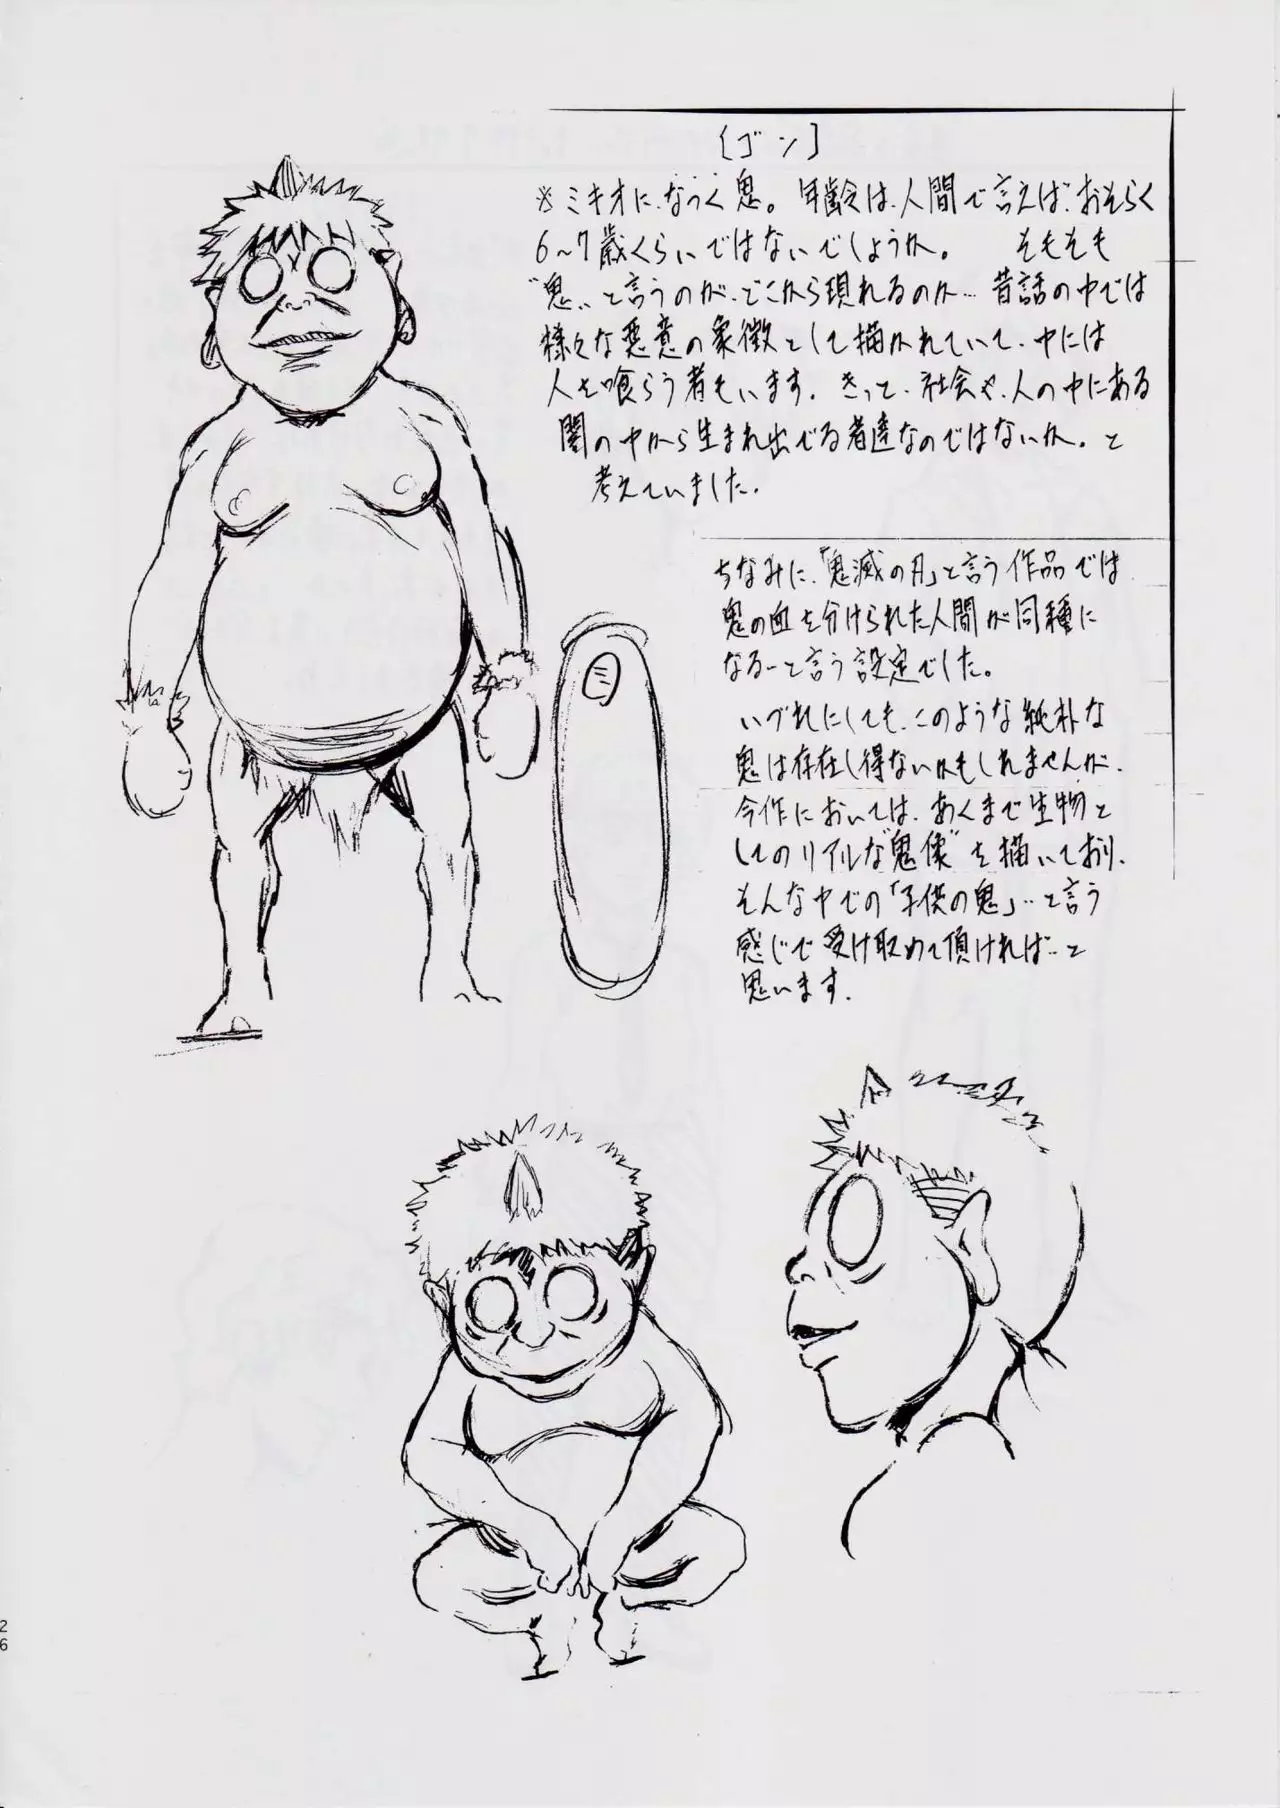 ［ゴン］
※ミキオに、なつく鬼。 年齢は、人間で言えば、おそらく
6〜7歳くらいではないでしょうか。 そもそも
"鬼〟と言うのが、どこから現れるのか… 昔話の中では
様々な悪意の象徴として描かれていて、中には
人を喰らう者もいます。きっと、社会や、人の中にある
闇の中から生まれ出でる者達なのではないか。と
考えていました。
ちなみに、「鬼滅の刃」と言う作品では
鬼の血を分けられた人間が同種に
なる…と言う設定でした。
いづれにしても、このような純朴な
鬼は存在し得ないかもしれませんが、
今作においては、あくまで生物と
してのリアルな"鬼像"を描いており、
そんな中での「子供の鬼」…と言う
感じで受け取めて頂ければ…と
思います。
26